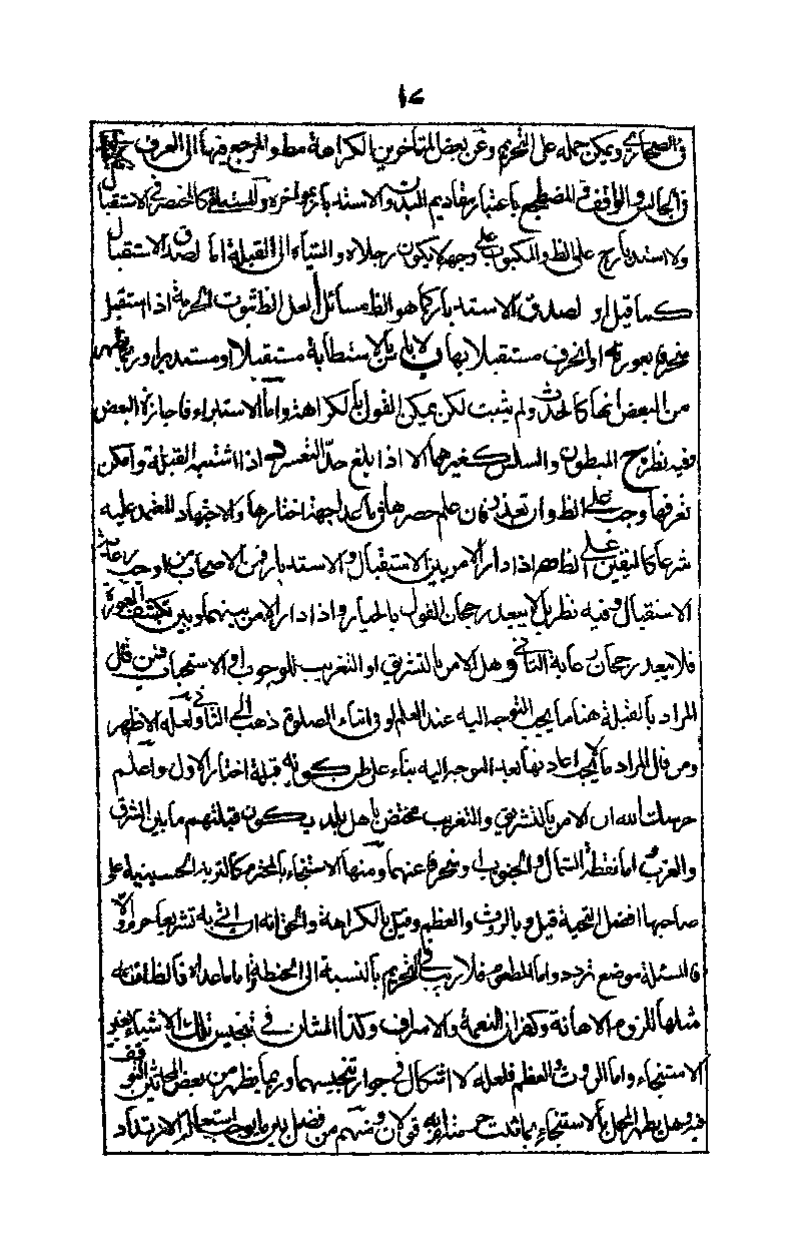 في الصحاري ويمكن حمله على التحريم وعن بعض المتأخرين الكراهة مط والمرجع فيها الى العرف
في الجالس والواقف في المضطجع باعتبار مقاديم البدن والاستدبار بمواخره والمسئلة كالمختصر في الاستقبال
ولا استدبار ح على الظ والمكبوب على وجهه لا يكون رجلاه والتياه الى القبلة اما لصدق الاستقبال
كما قيل او لصدق الاستدبار كما هو الظ مسائل الظ ثبوت الحرمة اذا استقبل
منحرفا بعورته او انحرف مستقبلا بها الاستطابة مستقبلا او مستدبرا وربما يظهر
من البعض انها كالحدث ولم يثبت لكن يمكن القول بالكراهة واما الاستبراء فاجازه البعض
وفيه نظر ح المبطون والسلس كغيرهما الا اذا بلغ حد التعسر ه اذا اشتبه القبلة وامكن
تعرفها وجب على الظ وان تعذر فان علم حصرها في باحد جهة اختارها والاجتهاد المعتمد عليه
شرعا كاليقين على الظاهر اذا دار الامر بين الاستقبال والاستدبار فمن الاصحاب من اوجب رعاية
الاستقبال وفيه نظر بل لا يبعد رجحان القول بالخيار واذا دار الامر بينهما وبين تكشف العورة
فلا يبعد رجحان رعاية الثاني وهل الامر بالتشريق او التغريب للوجوب او الاستحباب فمن قال
المراد بالقبلة هنا ما يجب التوجه اليه عند العلم او في اثناء الصلوة ذهب الى الثاني ولعله الاظهر
ومن قال المراد ما لا يجب اعادتها بعد التوجه اليه بناء على كونه قبلة اختار الاول واعلم
حرسك الله ان الامر بالتشريق والتغريب مختص باهل بلد يكون قبلتهم ما بين المشرق
والمغرب اما نقطة الشمال والجنوب او منحرفا عنهما ومنها الاستنجاء بالمحترم كالتربة الحسينية على
صاحبها افضل التحية قيل وبالروث والعظم وقيل بالكراهة والحق انه ان اتى به تشريعا حرم والا
فالمسئلة موضع تردد واما المطعوم فلا ريب في التحريم بالنسبة الى الحنطة واما ما عداه فالظ انه
مثلها للزوم الاهانة وكفران النعمة والاسراف وكذا المشان في تنجيس تلك الاشياء بغير
الاستنجاء واما الروث والعظم فلعله لا اشكال في جواز تنجيسهما وربما يظهر من بعض المحدثين التوقف
فيه وهل يطهر المحل بالاستنجاء بما ثبت قولان ومنهم من فصل بين ما يوجب استعماله الارتداد